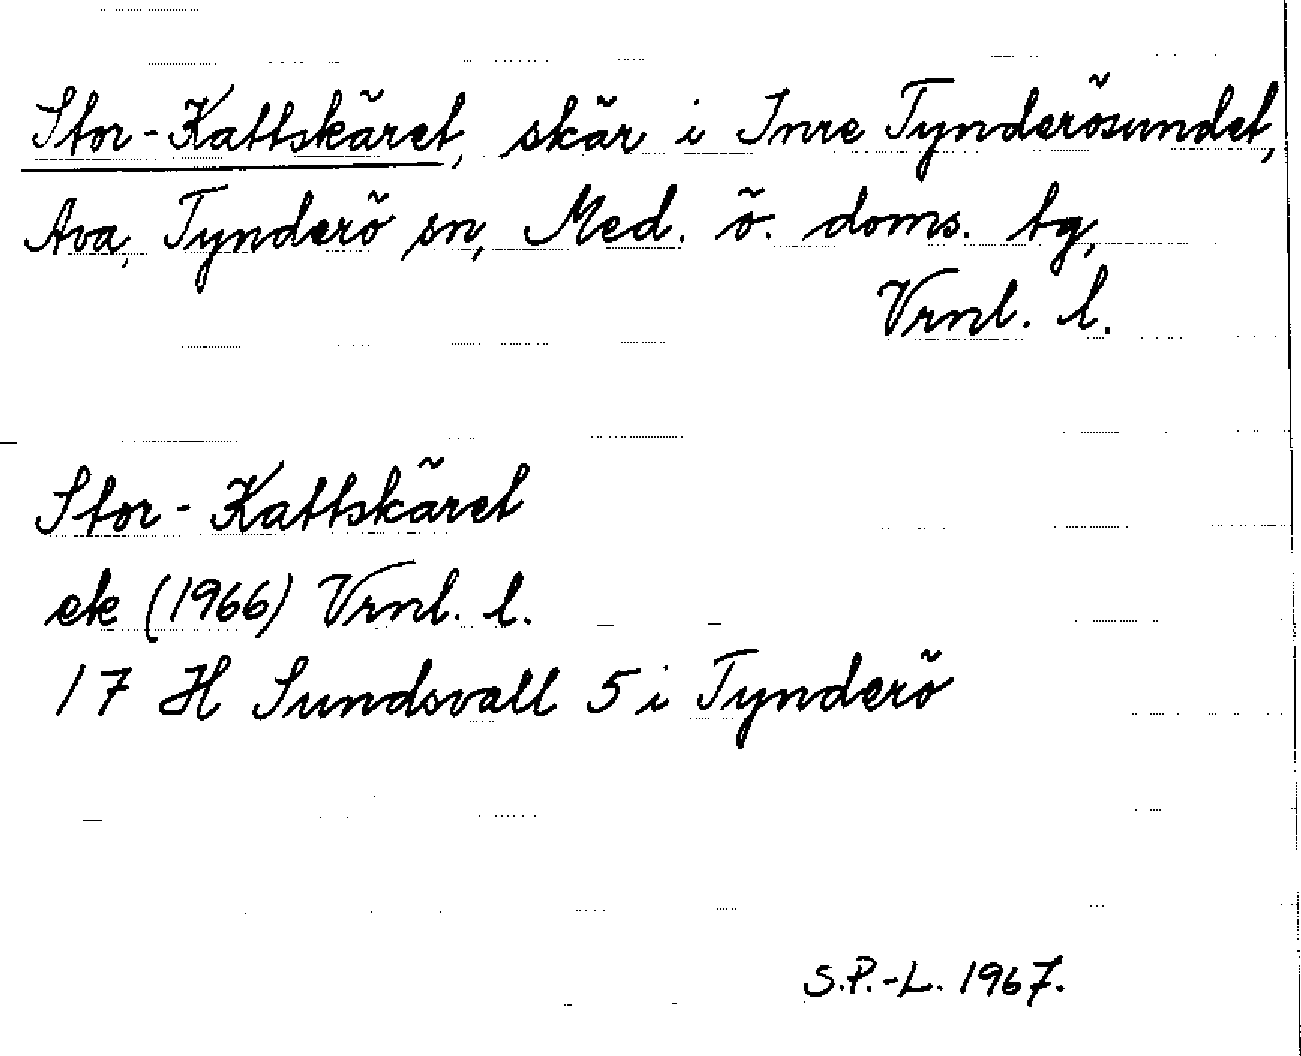 Stor-Kattskäret, skär i Inre Tynderösundet,
Ava, Tynderö sn, Med. ö. doms. tg,
Vrnl. l.
Stor-Kattskäret
ek (1966) Vrnl. l.
17 H Sundsvall 5 i Tynderö
S.P.-L. 1967.